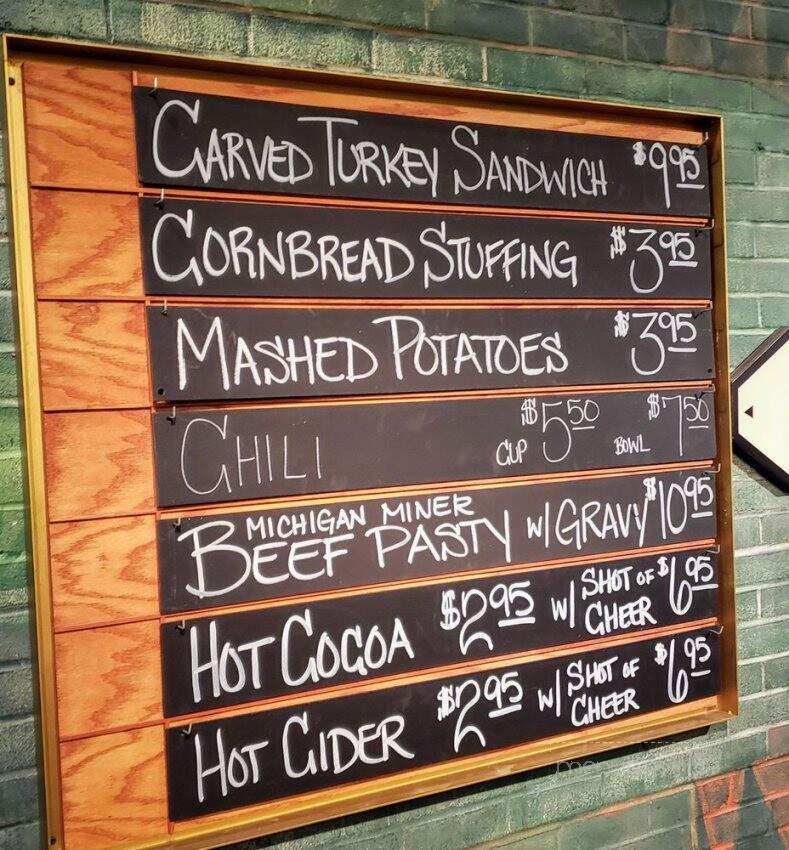 CARVED TURKEY SANDWICH $9.95
CORNBREAD STUFFING $3.95
MASHED POTATOES $3.95
CHILI CUP $5.50 BOWL $7.50
MICHIGAN MINER
BEEF PASTY W/ GRAVY $10.95
HOT COCOA $2.95 W/ SHOT OF CHEER $6.95
HOT CIDER $2.95 W/ SHOT OF CHEER $6.95